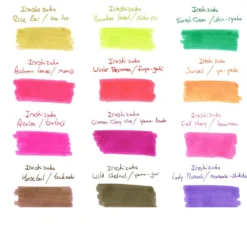 Iroshizuku
Rice Ear / ina-ho
Iroshizuku
Bamboo
Iroshizuku
Forest Green / shin-ryoku
Iroshizuku
Autumn Leaves / momiji
Iroshizuku
Winter Persimmon / fuyu-gaki
Iroshizuku
Sunset / yu-yake
Iroshizuku
Azalea / tsutsuji
Iroshizuku
Crimson Glory Vine / yama-budo
Iroshizuku
Iroshizuku
Horsetail / tsukushi
Iroshizuku
Wild Chestnut / yama-guri
Iroshizuku
Lady Murasaki / murasaki-shikibu